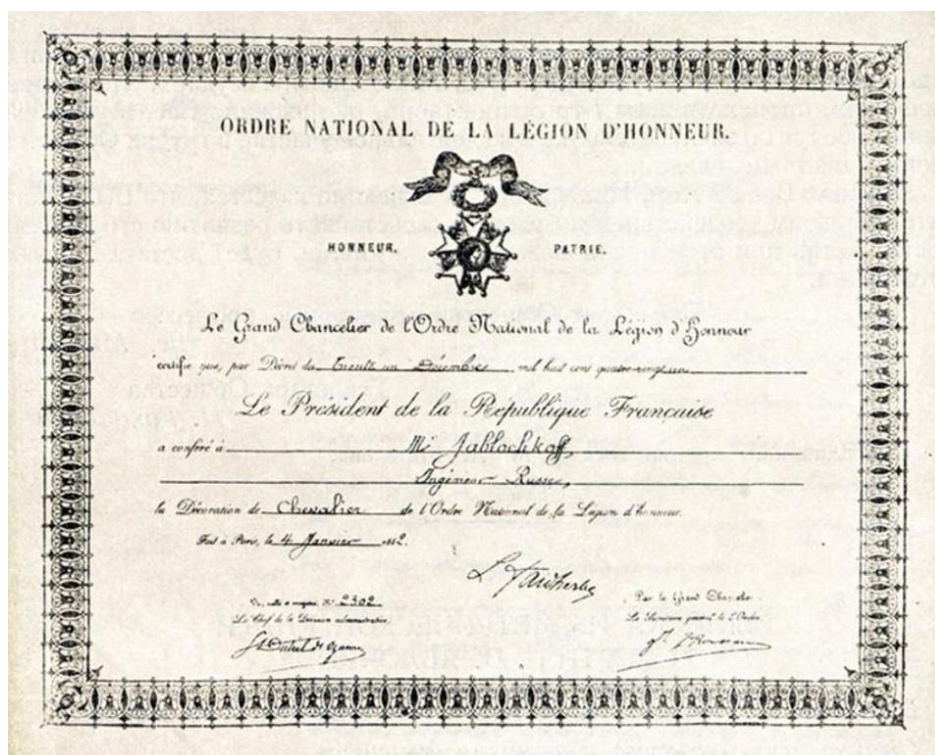 ORDRE NATIONAL DE LA LÉGION D'HONNEUR.
HONNEUR. PATRIE.
Le Grand Chancelier de l'Ordre National de la Légion d'Honneur
certifie que, par Décret du Trente un Décembre mil huit cent quatre-vingt un
Le Président de la République Française
a conféré à Mr Jablochkoff,
Ingénieur Russe,
la Décoration de Chevalier de l'Ordre National de la Légion d'honneur.
Fait à Paris, le 4 Janvier 1882.
L. Faidherbe
Vu, N° 2302
Par le Grand Chancelier
Le Chef de la Division administrative,
Le Secrétaire général de l'Ordre